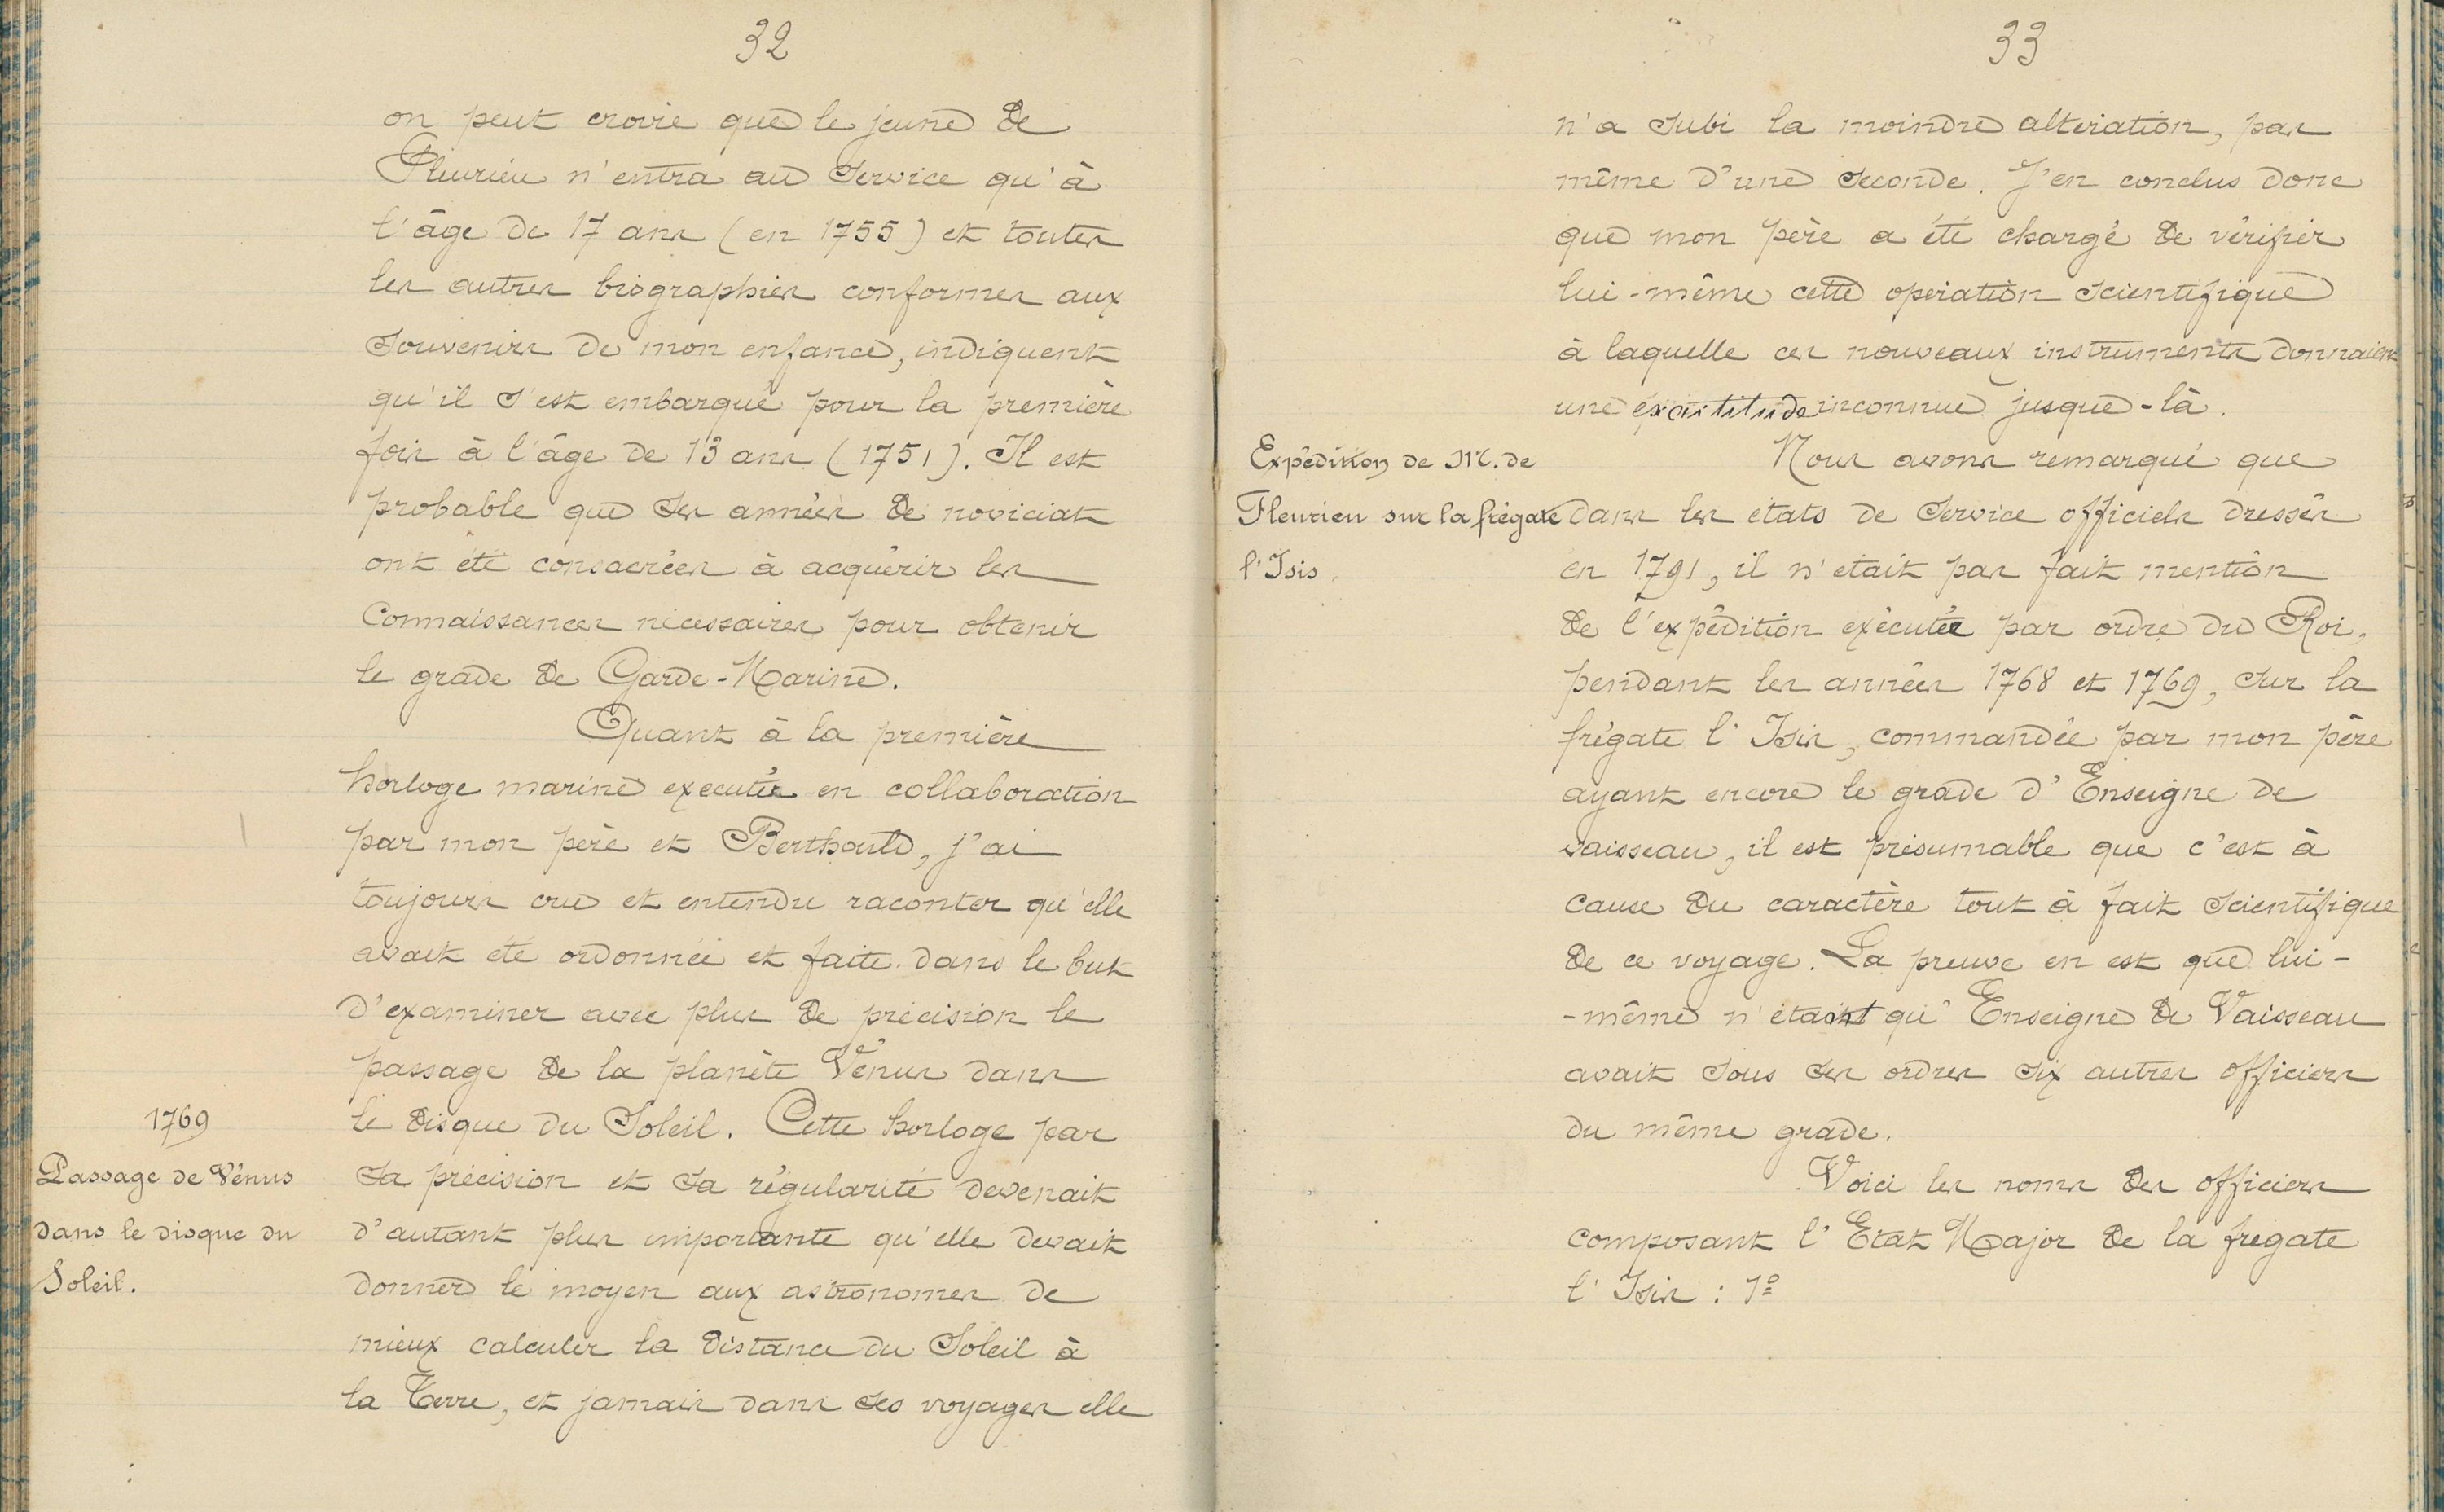 32
on peut croire que le jeune de
Fleurieu n'entra au service qu'à
l'âge de 17 ans (en 1755) et toutes
les autres biographies conformes aux
souvenirs de mon enfance, indiquent
qu'il s'est embarqué pour la première
fois à l'âge de 13 ans (1751). Il est
probable que ses années de noviciat
ont été consacrées à acquérir les
connaissances nécessaires pour obtenir
le grade de Garde-Marine.
Quant à la première
horloge marine executée en collaboration
par mon père et Berthould, j'ai
toujours cru et entendu raconter qu'elle
avait été ordonnée et faite dans le but
d'examiner avec plus de précision le
passage de la planète Vénus dans
le disque du Soleil. Cette horloge par
sa précision et sa régularité devenait
d'autant plus importante qu'elle devait
donner le moyen aux astronomes de
mieux calculer la distance du Soleil à
la Terre, et jamais dans ses voyages elle
1769
Passage de Vénus
dans le disque du
Soleil.
33
n'a subi la moindre altération, pas
même d'une seconde. J'en conclus donc
que mon père a été chargé de vérifier
lui-même cette opération scientifique
à laquelle ces nouveaux instruments donnaient
une exactitude inconnue jusque-là.
Nous avons remarqué que
dans les états de service officiels dressés
en 1791, il n'était pas fait mention
de l'expédition exécutée par ordre du Roi,
pendant les années 1768 et 1769, sur la
frégate l'Isis, commandée par mon père
ayant encore le grade d'Enseigne de
vaisseau, il est présumable que c'est à
cause du caractère tout à fait scientifique
de ce voyage. La preuve en est que lui-
-même n'étant qu'Enseigne de Vaisseau
avait sous ses ordres six autres officiers
du même grade.
Voici les noms des officiers
composant l'Etat Major de la frégate
l'Isis : 1º
Expédition de M. de
Fleurieu sur la frégate
l'Isis.